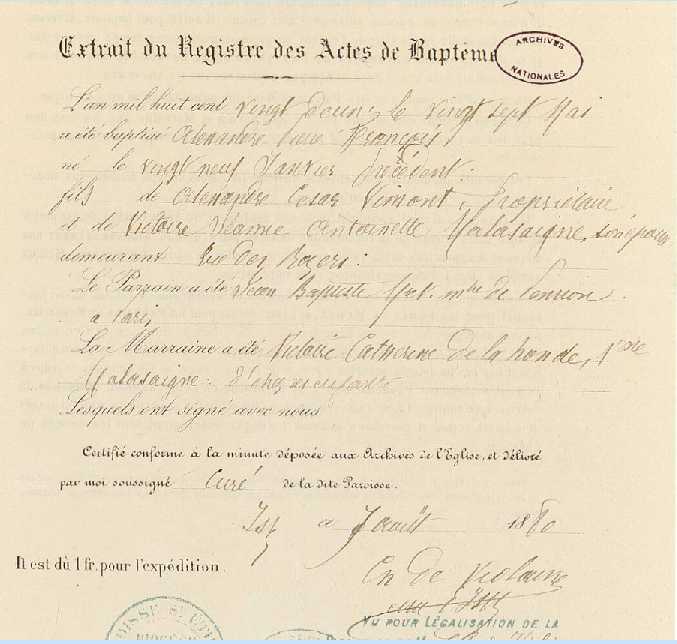 Extrait du Registre des Actes de Baptême
ARCHIVES
NATIONALES
L'an mil huit cent vingt deux, le vingt sept Mai
a été baptisé Alexandre François
né le vingt neuf Janvier précédent.
fils de Alexandre Cesar Vimont, propriétaire
et de Victoire Antoinette Malasaigne, son épouse
demeurant Rue des
Le Parrain a été Jean Baptiste de Pension
a Paris
La Marraine a été Victoire Catherine De la honde, Vve
Malasaigne.
Lesquels ont signé avec nous
Certifié conforme à la minute déposée aux Archives de l'Eglise, et délivré
par moi soussigné Curé de la dite Paroisse.
7 août 1880
Il est dû 1 fr. pour l'expédition.
VU POUR LÉGALISATION DE LA